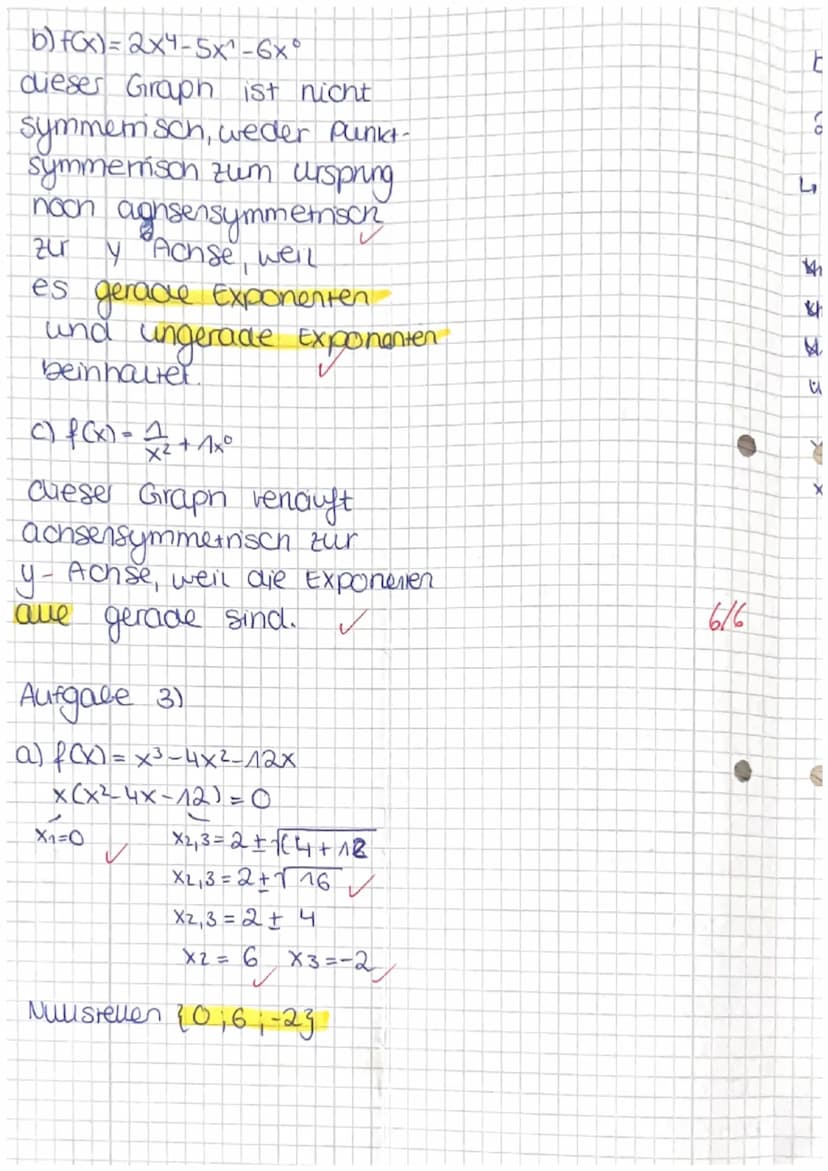 b) f(x) = 2x⁴ - 5x¹ - 6x⁰
dieser Graph ist nicht
symmetrisch, weder Punkt-
symmetrisch zum Ursprung
noch achsensymmetrisch
zur y Achse, weil
es gerade Exponenten
und ungerade Exponenten
beinhaltet.
c) f(x) = 1/x² + 1x⁰
dieser Graph verläuft
achsensymmetrisch zur
y-Achse, weil die Exponenten
alle gerade sind.
6/6
Aufgabe 3)
a) f(x) = x³ - 4x² - 12x
x(x² - 4x - 12) = 0
x₁=0 x₂,₃ = 2 ± √(4 + 12
x₂,₃ = 2 ± √16
x₂,₃ = 2 ± 4
x₂ = 6 x₃ = -2
Nullstellen {0 ; 6 ; -2}